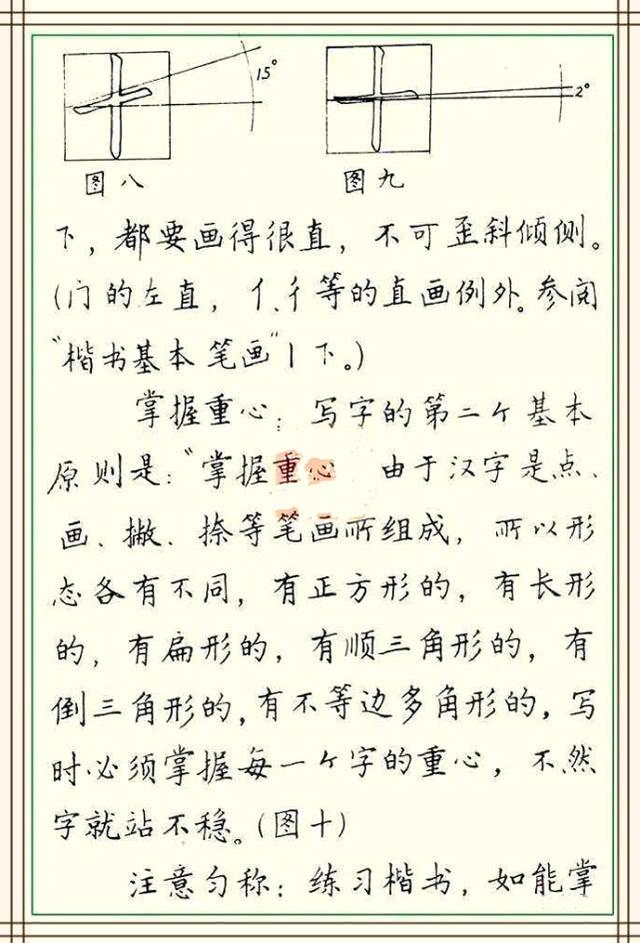 15° 2°
图八 图九
下，都要画得很直，不可歪斜倾侧。
(门的左直，亻、彳等的直画例外。参阅
“楷书基本笔画”丨下。)
掌握重心：写字的第二个基本
原则是：“掌握重心 由于汉字是点、
画、撇、捺等笔画所组成，所以形
态各有不同，有正方形的，有长形
的，有扁形的，有顺三角形的，有
倒三角形的，有不等边多角形的，写
时必须掌握每一个字的重心，不然
字就站不稳。(图十)
注意匀称：练习楷书，如能掌